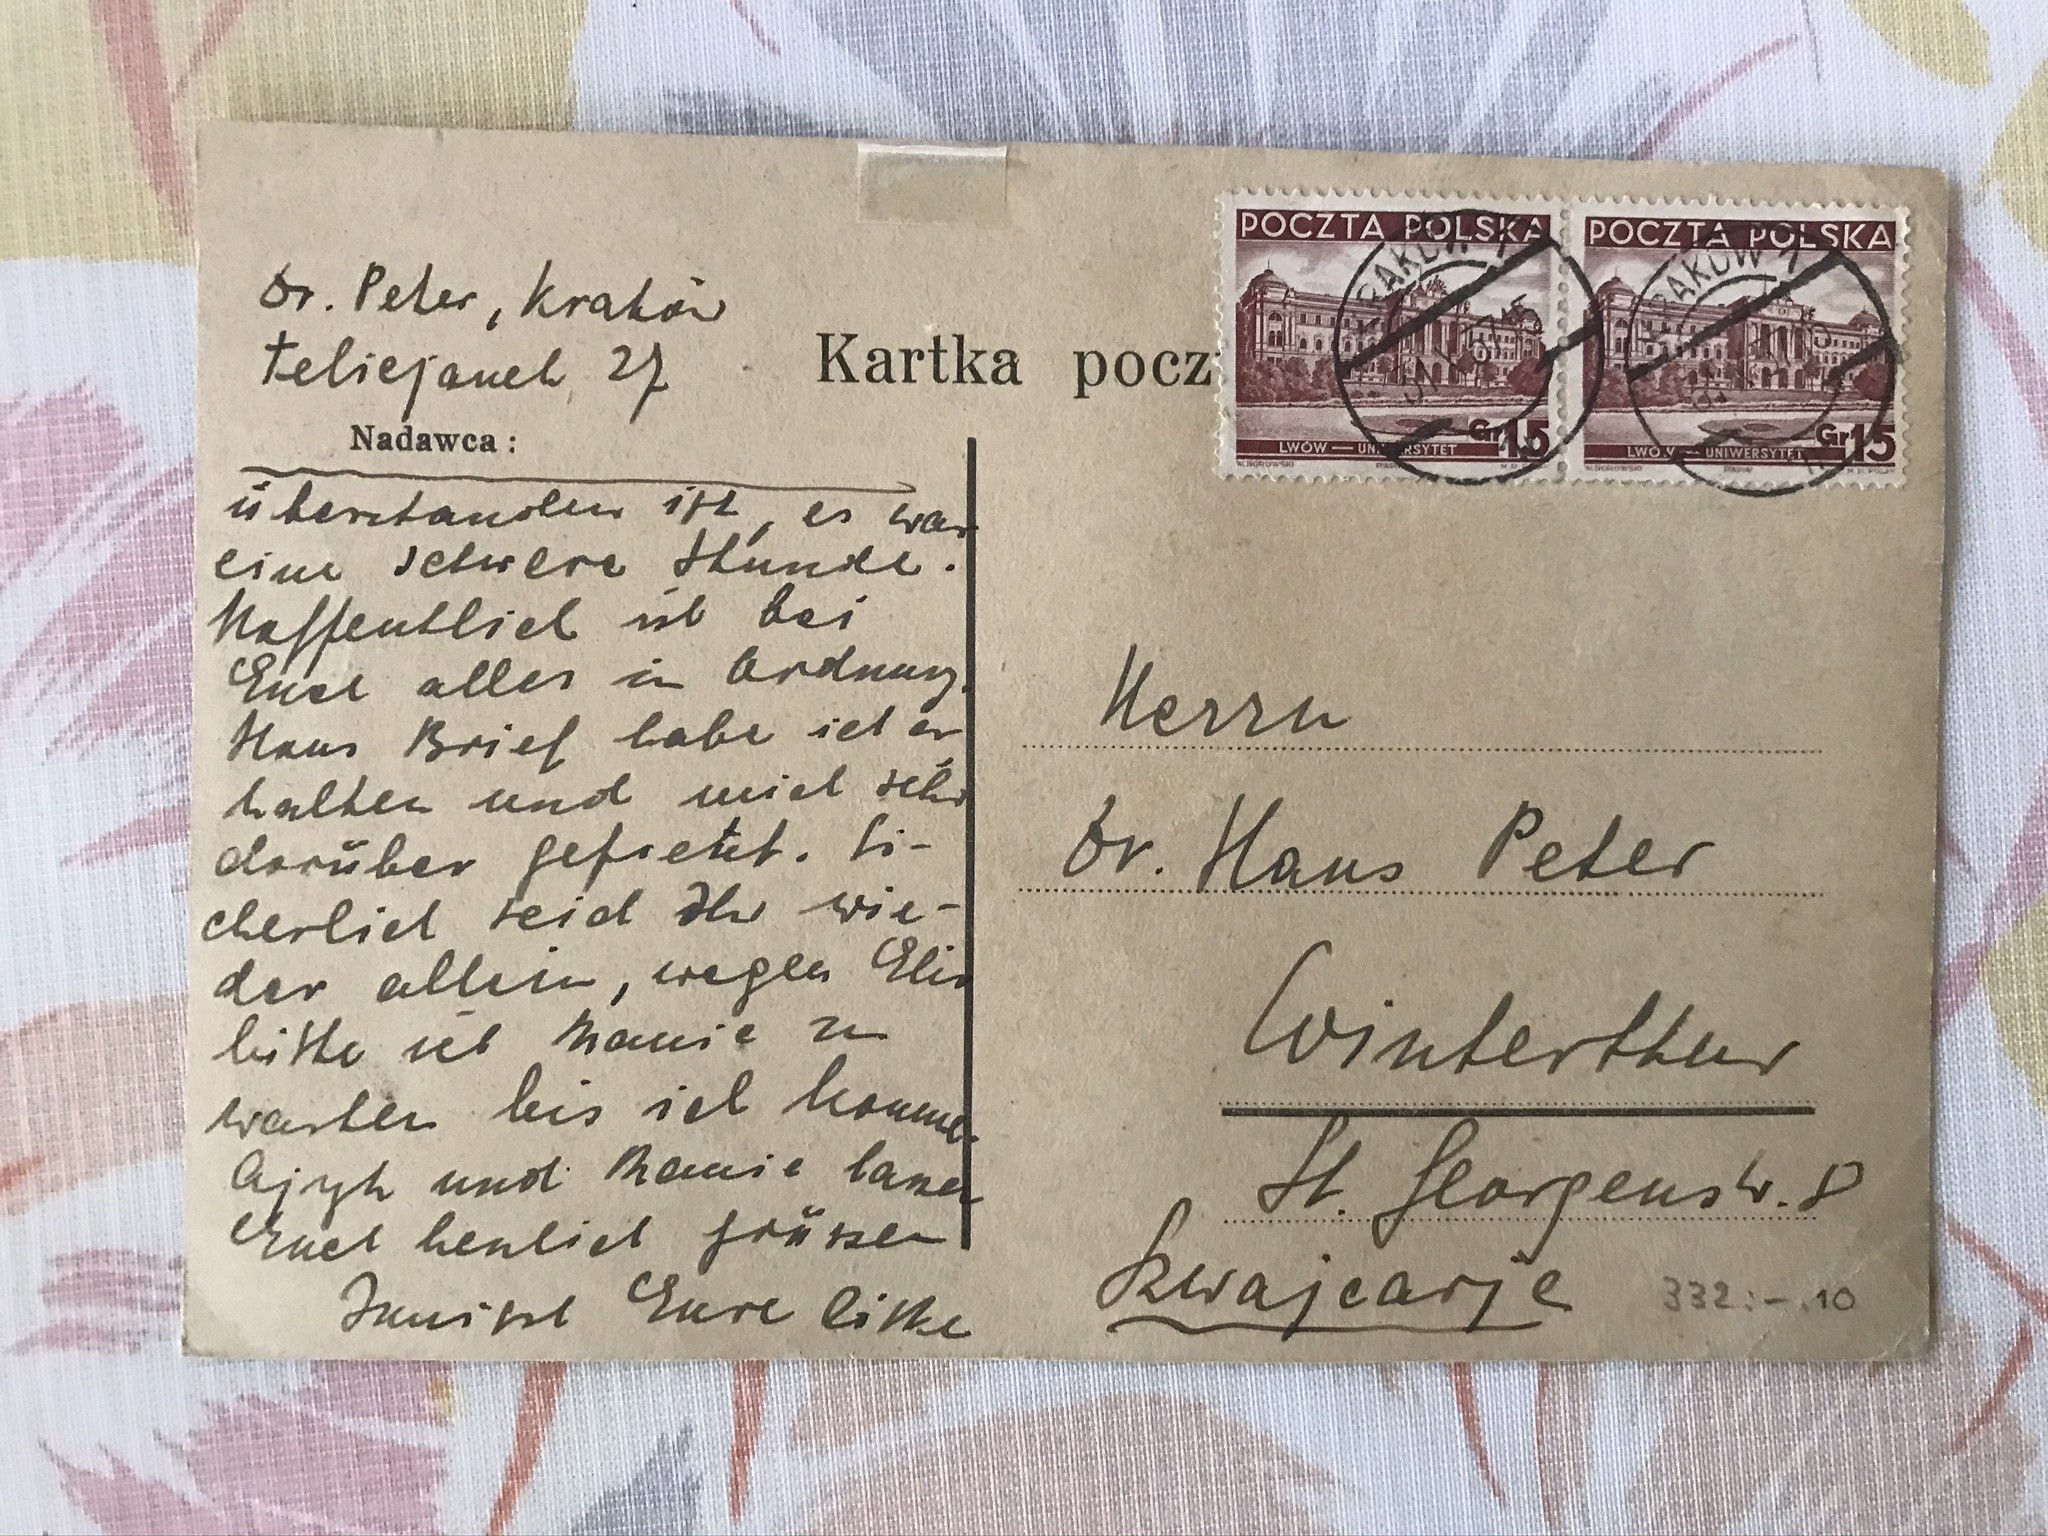 Dr. Peter, Kraków
Felicjanek 27
Nadawca:
überstanden ist, es war
eine schwere Stunde.
Hoffentlich ist bei
Euch alles in Ordnung.
Hans Brief habe ich er
halten und mich sehr
darüber gefreut. Si-
cherlich seid Ihr wie-
der allein, wegen Elis
bitte ich Mamie zu
warten bis ich komme.
und Mamie lassen
Euch herzlich grüssen
Innigst Eure
Kartka pocz
POCZTA POLSKA
LWÓW — UNIWERSYTET
Gr 15
POCZTA POLSKA
LWÓW — UNIWERSYTET
Gr 15
KRAKÓW 1
KRAKÓW 1
Herrn
Dr. Hans Peter
Winterthur
St. Georgenstr. 8
Szwajcarje
332:-.10